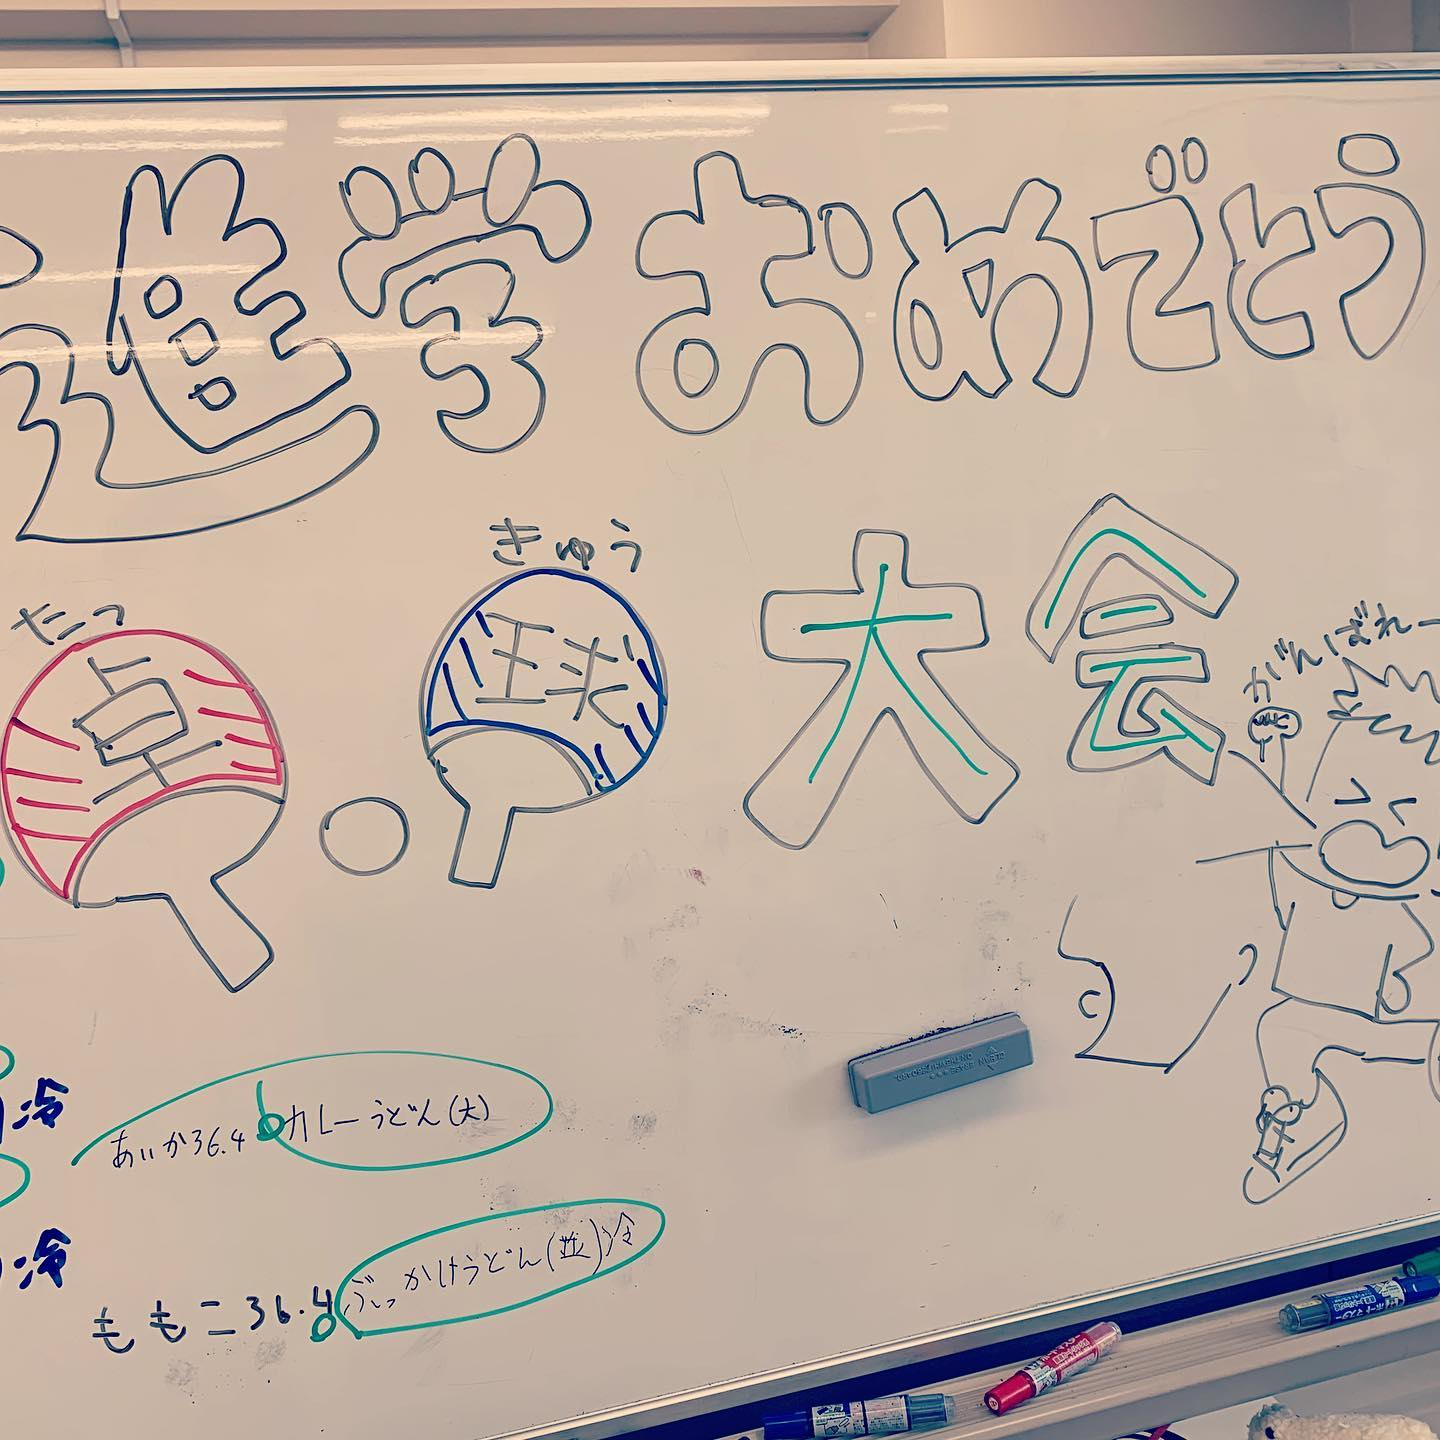 進学おめでとう
たっ きゅう
卓 球 大会
がんばれー
冷 あいか36.4 カレーうどん(大)
冷 ももこ36.4 ぶっかけうどん(並)冷